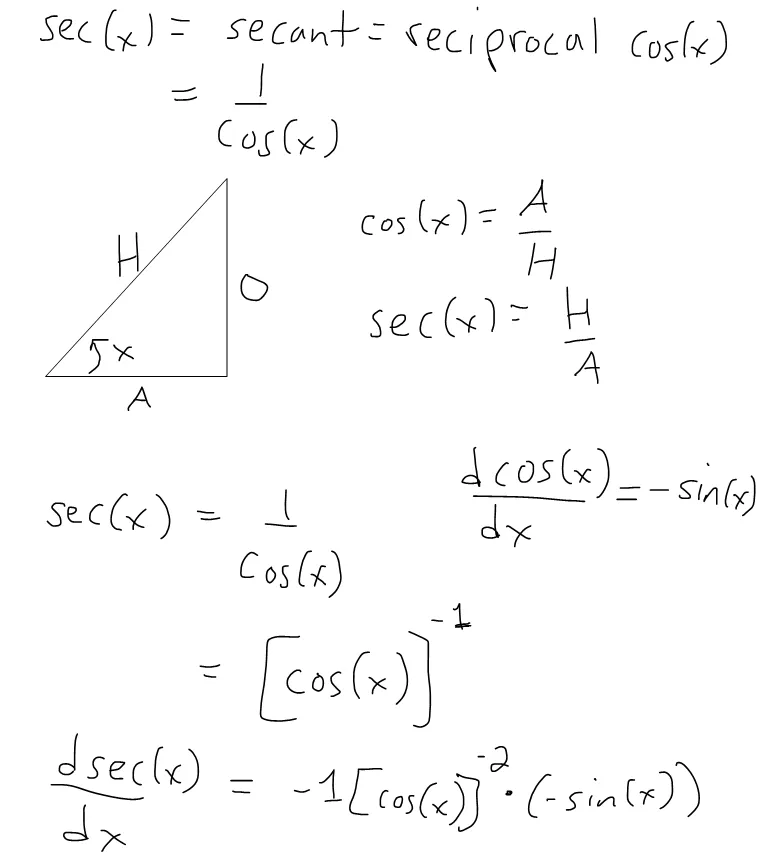 sec(x) = secant = reciprocal cos(x)
= 1/cos(x)
cos(x) = A/H
H
O
sec(x) = H/A
x
A
dcos(x)/dx = -sin(x)
sec(x) = 1/cos(x)
= [cos(x)]^-1
dsec(x)/dx = -1[cos(x)]^-2 · (-sin(x))